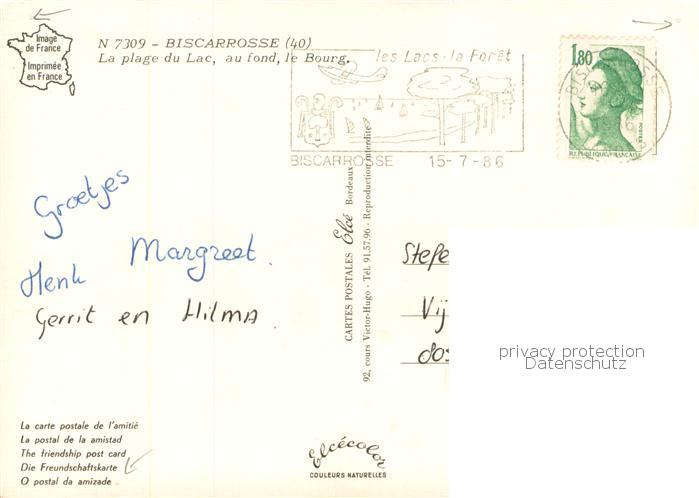 Image
de France
Imprimée
en France
N 7309 - BISCARROSSE (40)
La plage du Lac, au fond, le Bourg.
les Lacs-la Forêt
BISCARROSSE 15-7-86
1,80
POSTES
REPUBLIQUE FRANÇAISE
Groetjes
Margreet.
Henk
Gerrit en Hilma
CARTES POSTALES Elcé Bordeaux
92, cours Victor-Hugo - Tél. 91.57.96 - Reproduction interdite
Stefe
Vij
dos
privacy protection
Datenschutz
La carte postale de l'amitié
La postal de la amistad
The friendship post card
Die Freundschaftskarte
O postal da amizade
Elcécolor
COULEURS NATURELLES